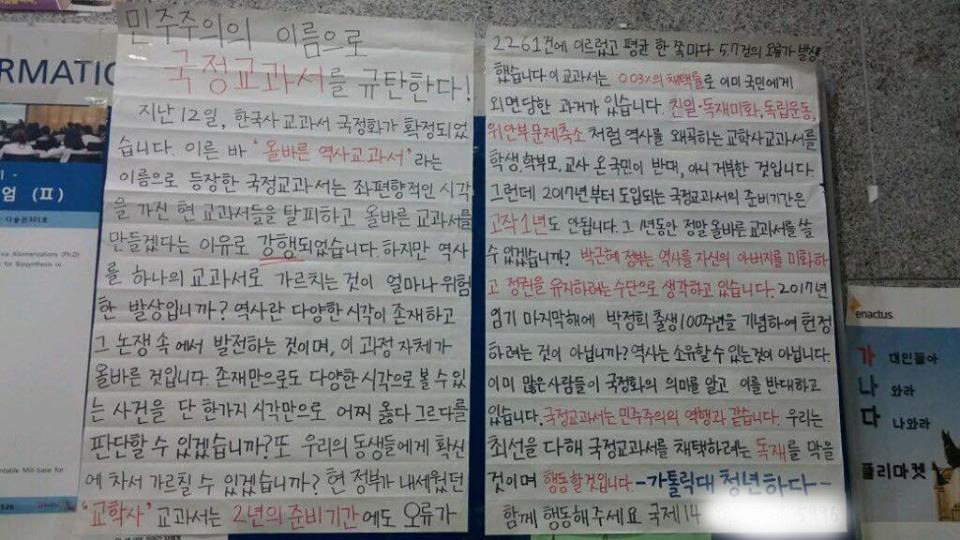 민주주의의 이름으로
국정교과서를 규탄한다!
지난 12일, 한국사교과서 국정화가 확정되었
습니다. 이른 바 '올바른 역사교과서' 라는
이름으로 등장한 국정교과서는 좌편향적인 시각
을 가진 현 교과서들을 탈피하고 올바른 교과서를
만들겠다는 이유로 강행되었습니다. 하지만 역사
를 하나의 교과서로 가르치는 것이 얼마나 위험
한 발상입니까? 역사란 다양한 시각이 존재하고
그 논쟁 속에서 발전하는 것이며, 이 과정 자체가
올바른 것입니다. 존재만으로도 다양한 시각으로 볼 수 있
는 사건을 단 한가지 시각만으로 어찌 옳다 그르다를
판단할 수 있겠습니까? 또 우리의 동생들에게 확신
에 차서 가르칠 수 있겠습니까? 현 정부가 내세웠던
'교학사' 교과서는 2년의 준비기간에도 오류가
2261건에 이르렀고 평균 한 쪽마다 5.7건의 오류가 발생
했습니다. 이 교과서는 0.03%의 채택률로 이미 국민에게
외면당한 과거가 있습니다. 친일·독재미화, 독립운동,
위안부문제축소 처럼 역사를 왜곡하는 교학사교과서를
학생, 학부모, 교사 온 국민이 반대, 아니 거부한 것입니다.
그런데 2017년부터 도입되는 국정교과서의 준비기간은
고작 1년도 안됩니다. 그 1년동안 정말 올바른 교과서를 쓸
수 있겠습니까? 박근혜 정부는 역사를 자신의 아버지를 미화하
고 정권을 유지하려는 수단으로 생각하고 있습니다. 2017년
임기 마지막해에 박정희 출생 100주년을 기념하여 헌정
하려는 것이 아닙니까? 역사는 소유할 수 있는것이 아닙니다.
이미 많은 사람들이 국정화의 의미를 알고 이를 반대하고
있습니다. 국정교과서는 민주주의의 역행과 같습니다. 우리는
최선을 다해 국정교과서를 채택하려는 독재를 막을
것이며 행동할것입니다. -가톨릭대 청년하다-
함께 행동해주세요 국제 14
RMATIC
엄 (Π)
다솔관301호
via Allomerizations (Ph.D)
for Biosynthesis o
ntable Mill-base for
enactus
가 대인돌아
나 와라
다 나와라
플리마켓